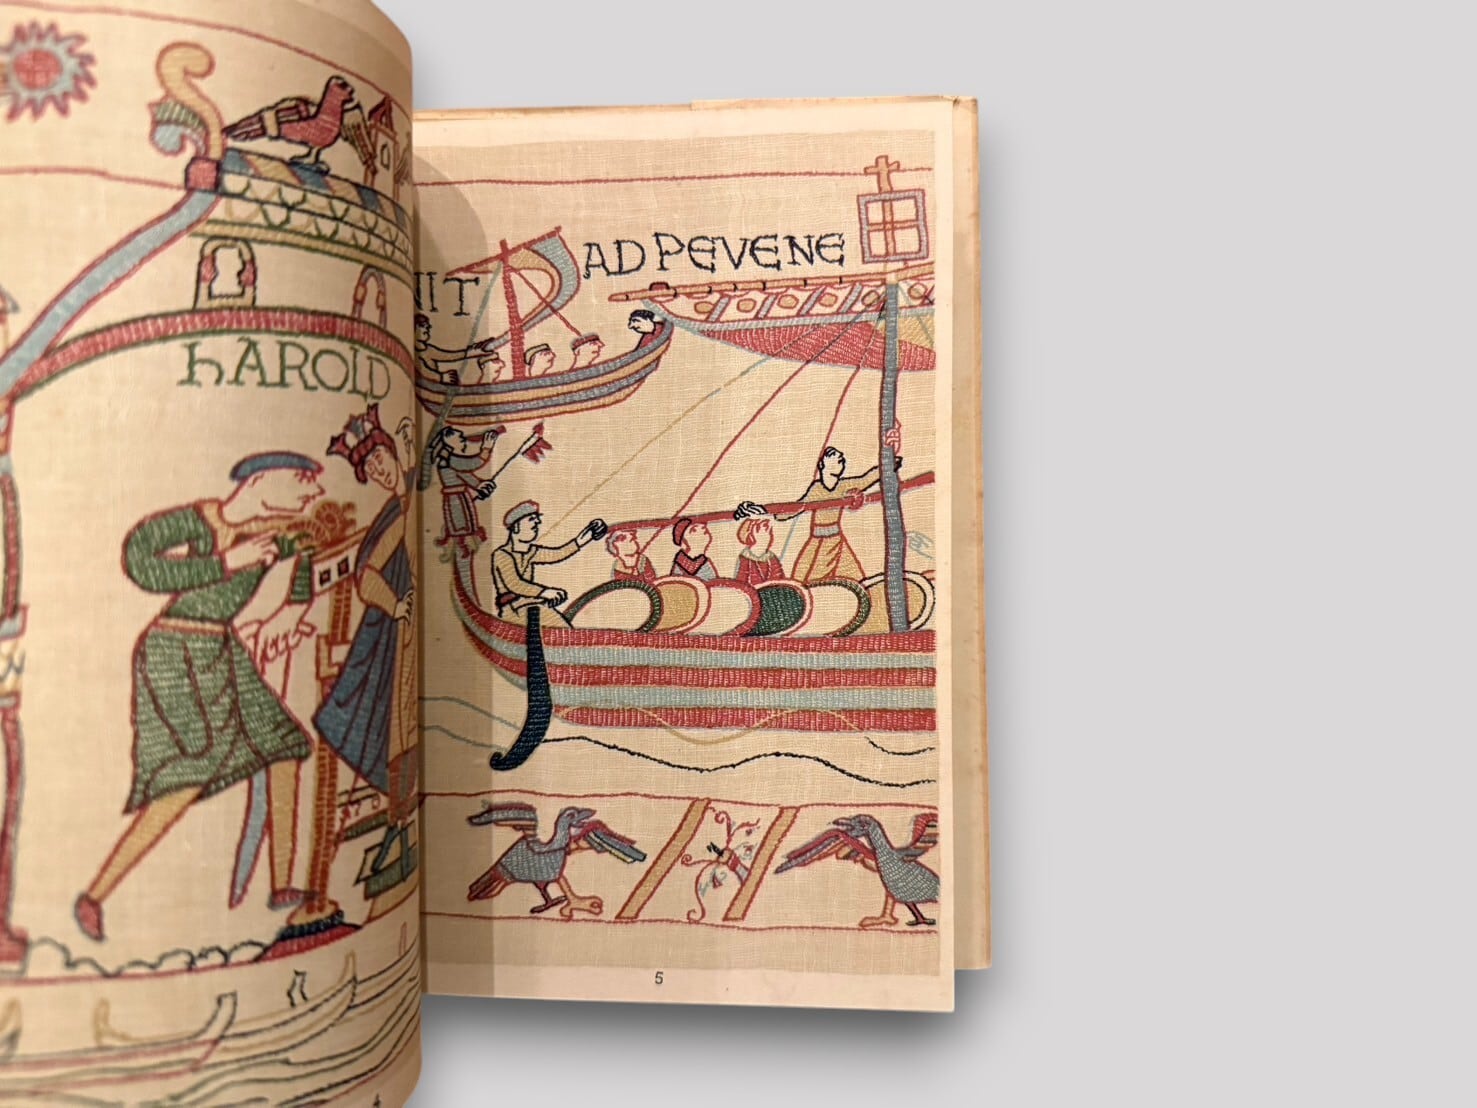 hAROLD
NIT
AD PEVENE
5
4